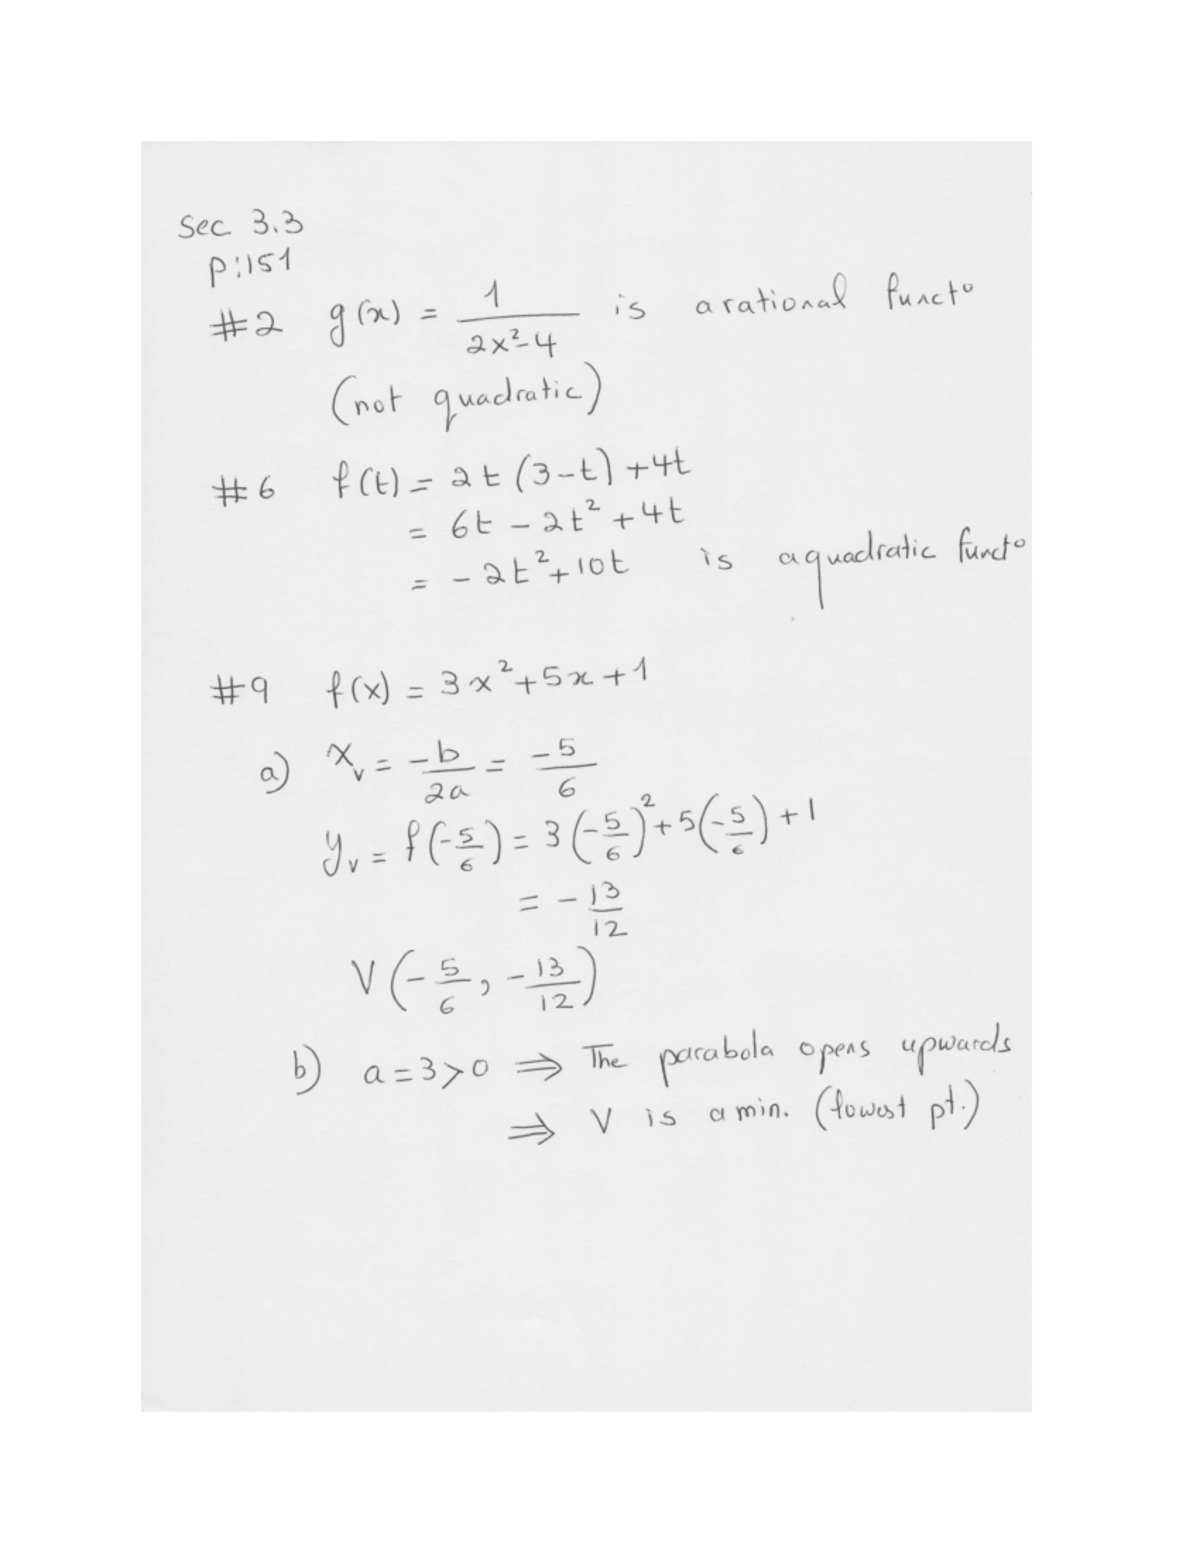 Sec 3.3
p:151
#2 g(x) = 1/(2x²-4) is a rational functo
(not quadratic)
#6 f(t) = 2t(3-t)+4t
= 6t - 2t² + 4t
= -2t²+10t is a quadratic functo
#9 f(x) = 3x²+5x+1
a) x_v = -b/2a = -5/6
y_v = f(-5/6) = 3(-5/6)²+5(-5/6)+1
= -13/12
V(-5/6, -13/12)
b) a=3>0 ⇒ The parabola opens upwards
⇒ V is a min. (lowest pt.)